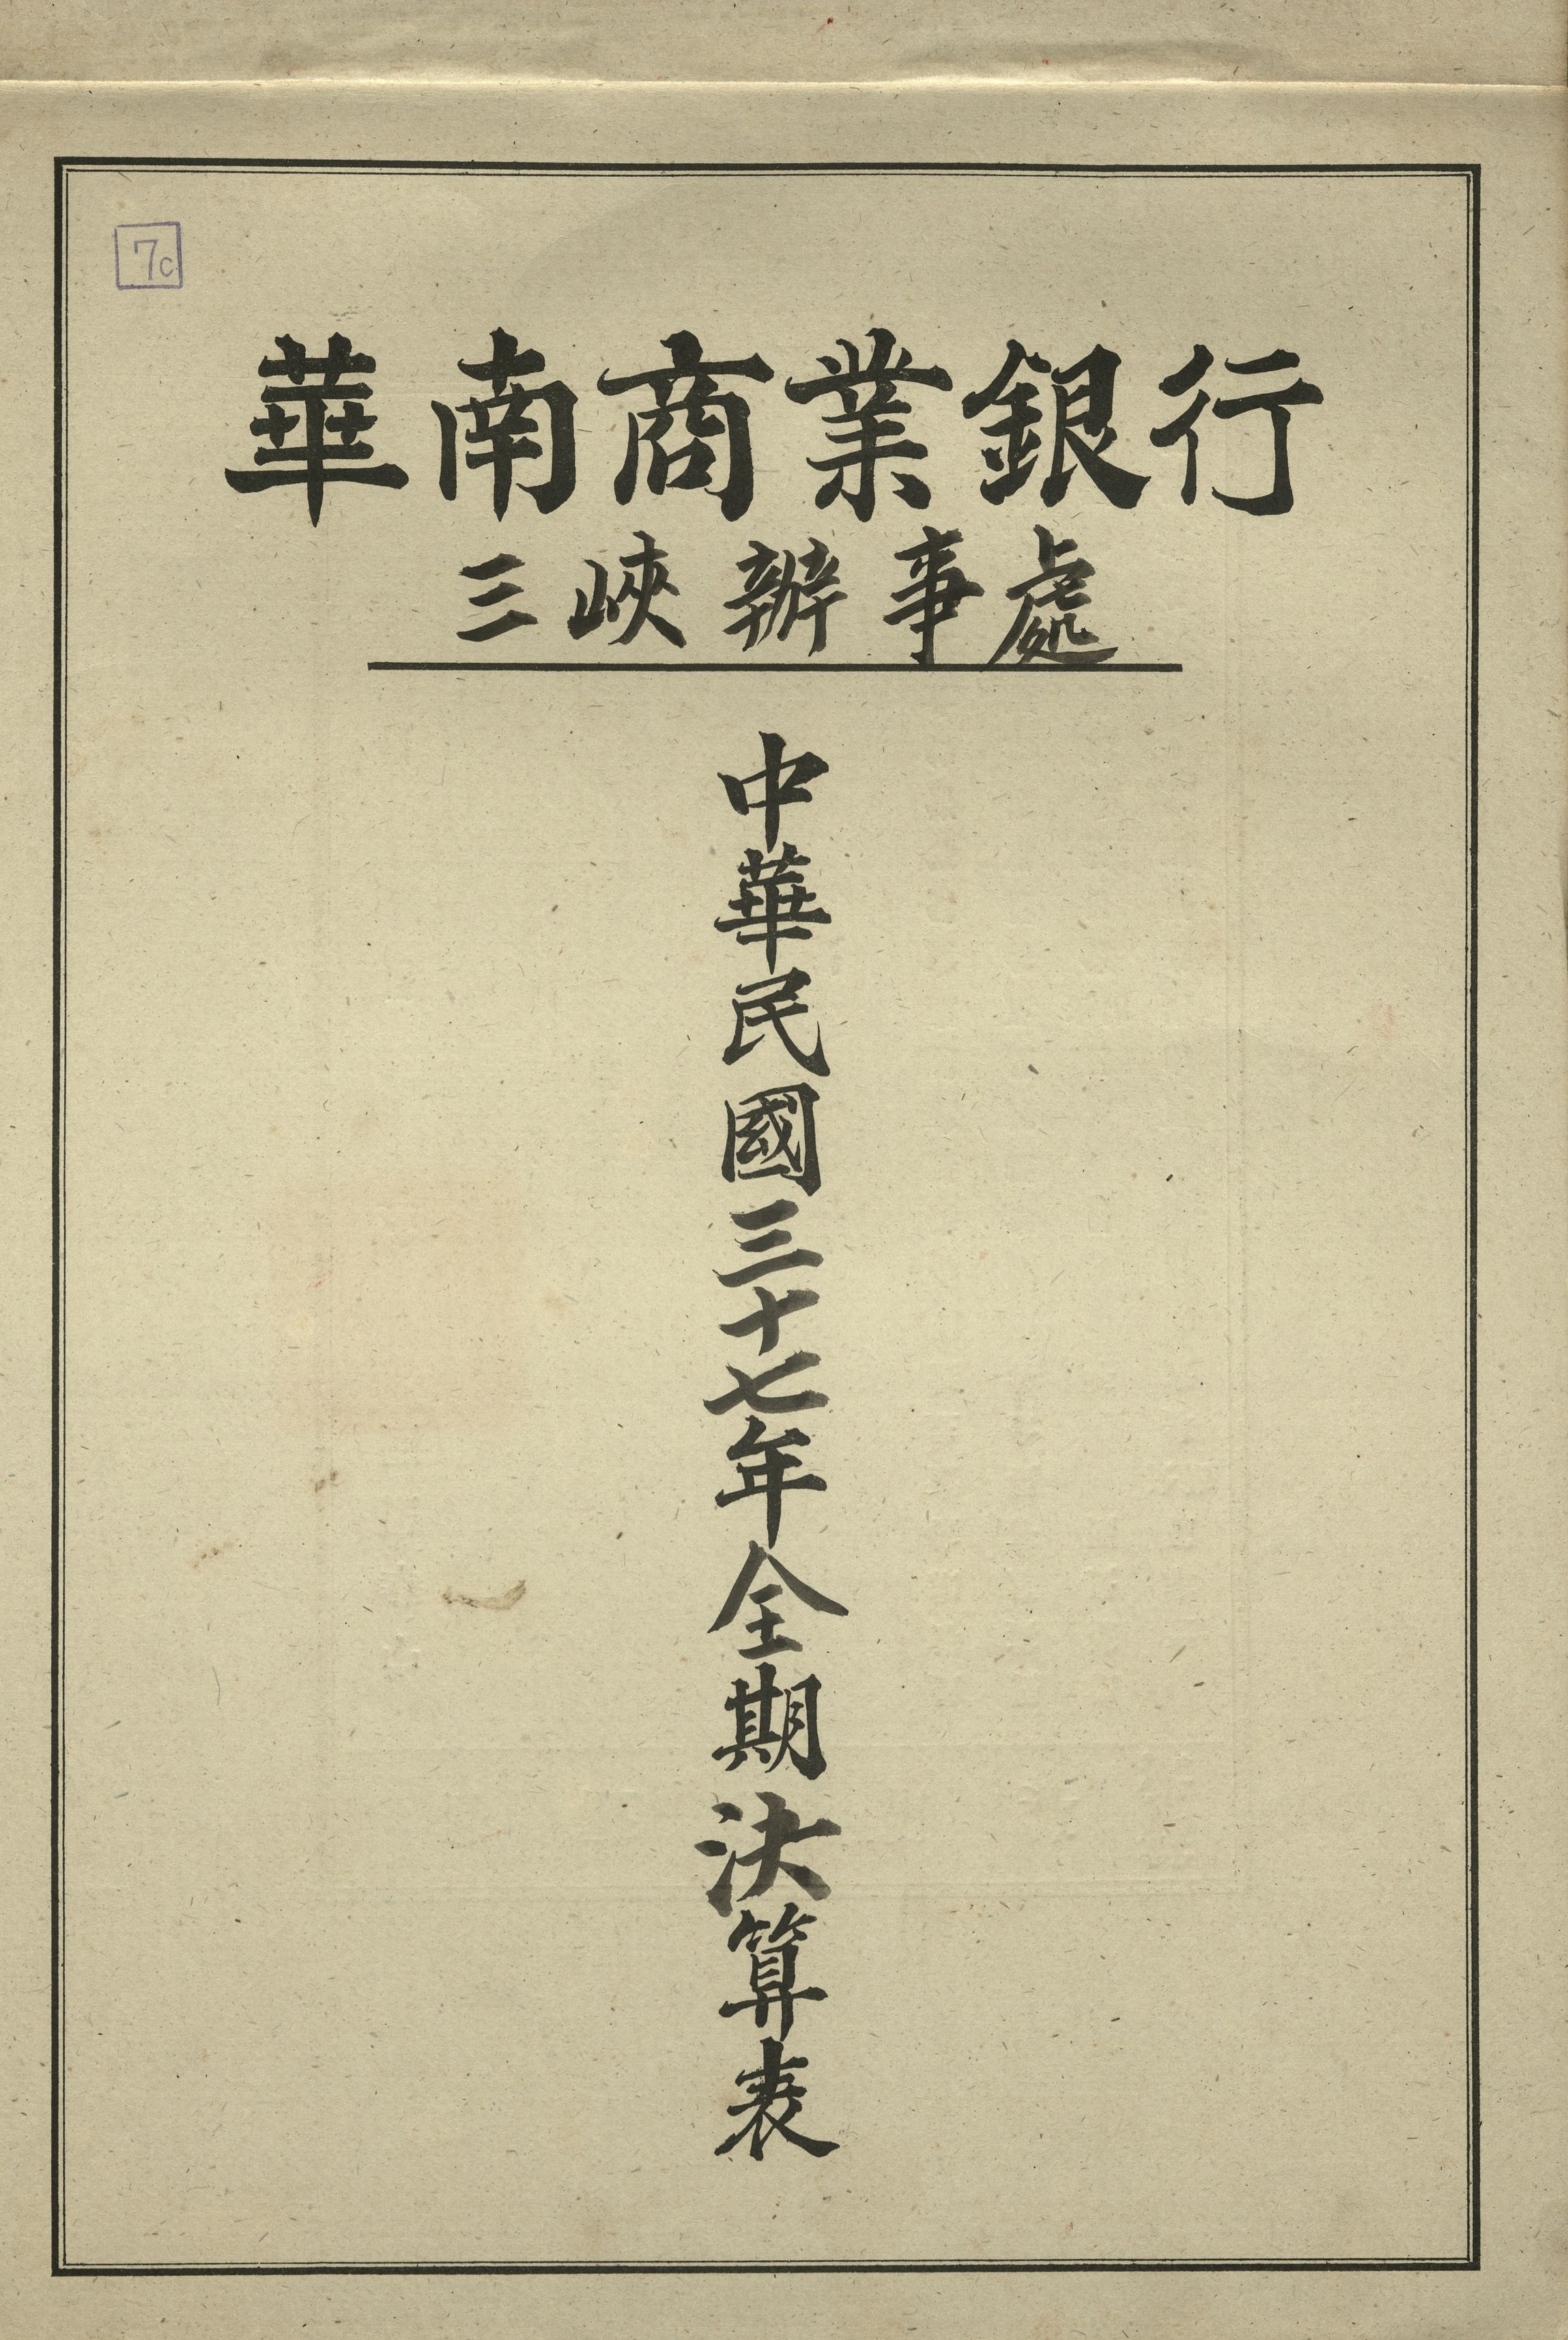 7c
華南商業銀行
三峽辦事處
中華民國三十七年全期決算表